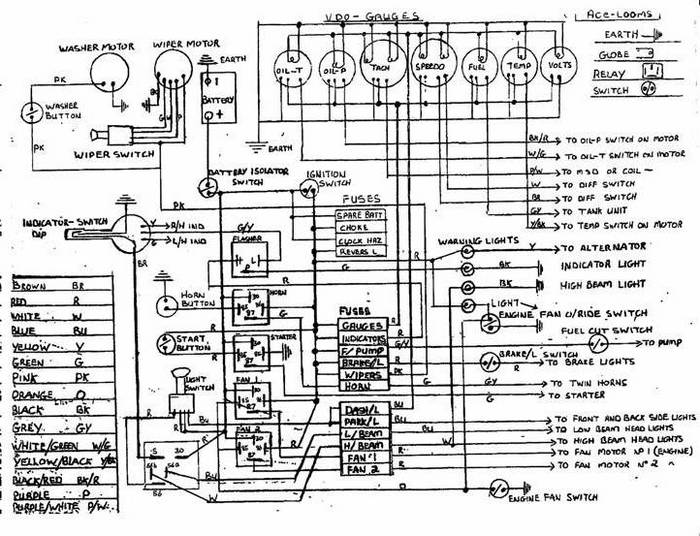 VDO-GAUGES
Ace-Looms
WASHER MOTOR
WIPER MOTOR
EARTH
EARTH
GLOBE
RELAY
SWITCH
OIL-T
OIL-P
TACH
SPEEDO
FUEL
TEMP
VOLTS
PK
BATTERY
WASHER BUTTON
PK
WIPER SWITCH
EARTH
BK/R TO OIL-P SWITCH ON MOTOR
W/G TO OIL-T SWITCH ON MOTOR
P/W TO MSD OR COIL-
W TO DIFF SWITCH
BR TO DIFF SWITCH
GY TO TANK UNIT
Y/BK TO TEMP SWITCH ON MOTOR
BATTERY ISOLATOR SWITCH
IGNITION SWITCH
PK
R
FUSES
SPARE BATT
CHOKE
CLOCK HAZ
REVERS L
INDICATOR-SWITCH
DIP
Y R/H IND
G L/H IND
BR
G/Y
FLASHER
L
R
G
WARNING LIGHTS
Y TO ALTERNATOR
BK INDICATOR LIGHT
BK HIGH BEAM LIGHT
LIGHT
ENGINE FAN O/RIDE SWITCH
FUEL CUT SWITCH
TO PUMP
BRAKE/L SWITCH
R TO BRAKE LIGHTS
GY TO TWIN HORNS
R TO STARTER
BROWN BR
RED R
WHITE W
BLUE BU
YELLOW Y
GREEN G
PINK PK
ORANGE O
BLACK BK
GREY GY
WHITE/GREEN W/G
YELLOW/BLACK Y/BK
BLACK/RED BK/R
PURPLE P
PURPLE/WHITE P/W.
HORN BUTTON
HORN
START BUTTON
STARTER
LIGHT SWITCH
FAN 1
FAN 2
30
87
S 30
56
FUSES
GAUGES R
INDICATORS G/Y
F/PUMP R
BRAKE/L R
WIPERS PK
HORN G
DASH/L
PARK/L
L/BEAM
H/BEAM
FAN 1
FAN 2
R
BU
BU
W
O
BU TO FRONT AND BACK SIDE LIGHTS
BU TO LOW BEAM HEAD LIGHTS
W TO HIGH BEAM HEAD LIGHTS
R TO FAN MOTOR Nº 1 (ENGINE)
R TO FAN MOTOR Nº 2 "
ENGINE FAN SWITCH